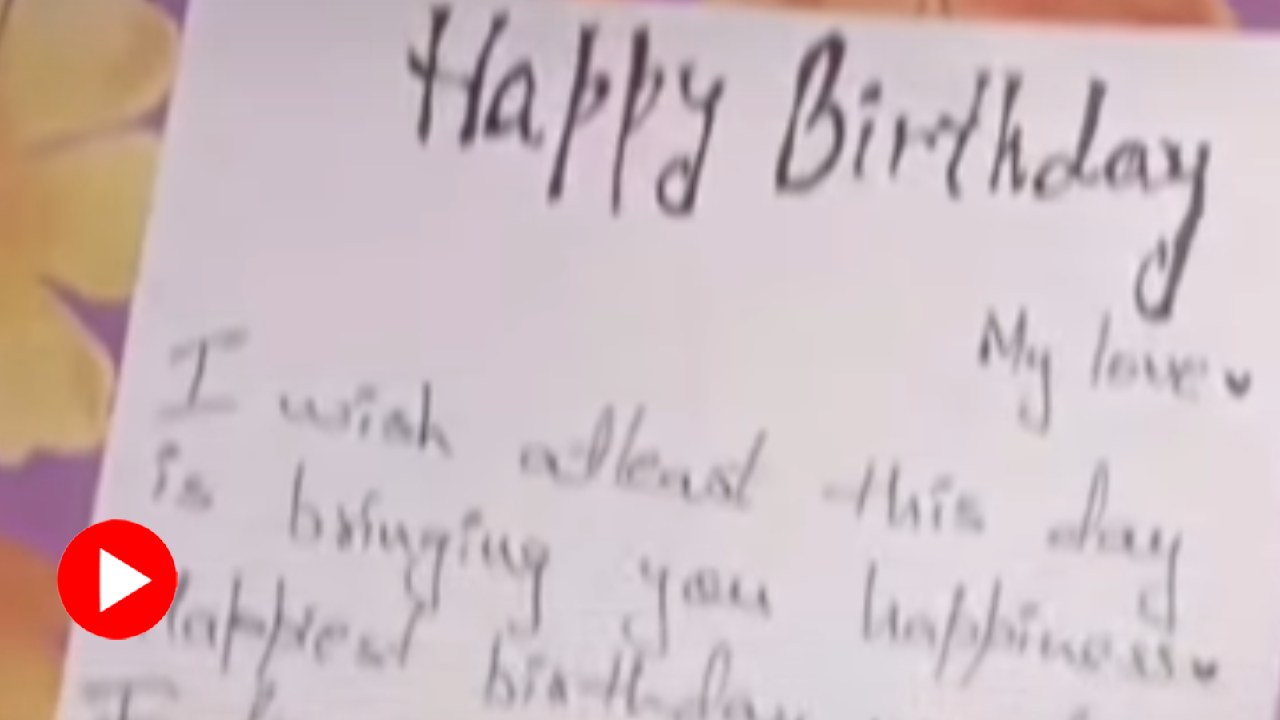 Happy Birthday
My love ♥
I wish atleast this day
is bringing you happiness ♥
Happiest birthday
I